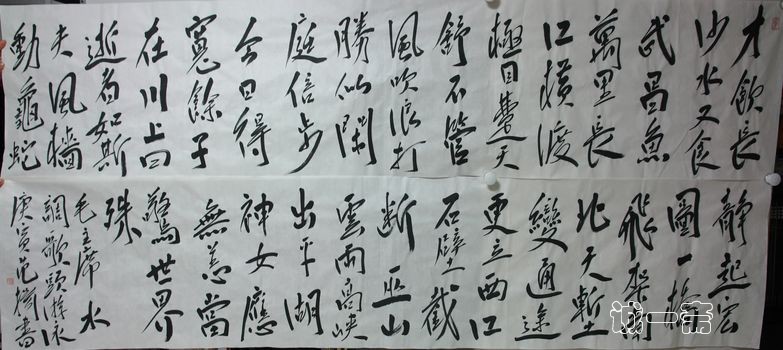 才飲長
沙水又食
武昌魚
萬里長
江橫渡
極目楚天
舒不管
風吹浪打
勝似閑
庭信步
今日得
寬餘子
在川上曰
逝者如斯
夫風檣
動龜蛇
靜起宏
圖一橋
飛架南
北天塹
變通途
更立西江
石壁截
断巫山
雲雨高峽
出平湖
神女應
無恙當
驚世界
殊
毛主席 水
調歌頭游泳
庚寅 書